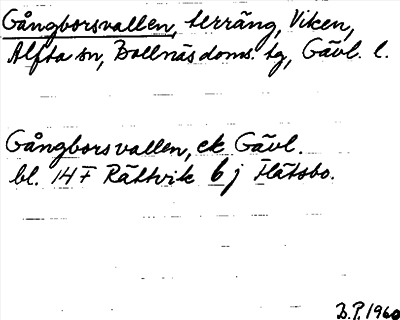 Gångborsvallen, terräng, Viken,
Alfta sn, Bollnäs doms. tg, Gävl. l.
Gångborsvallen, ek Gävl.
bl. 14 F Rättvik 6 j Flätsbo.
B.P. 1960